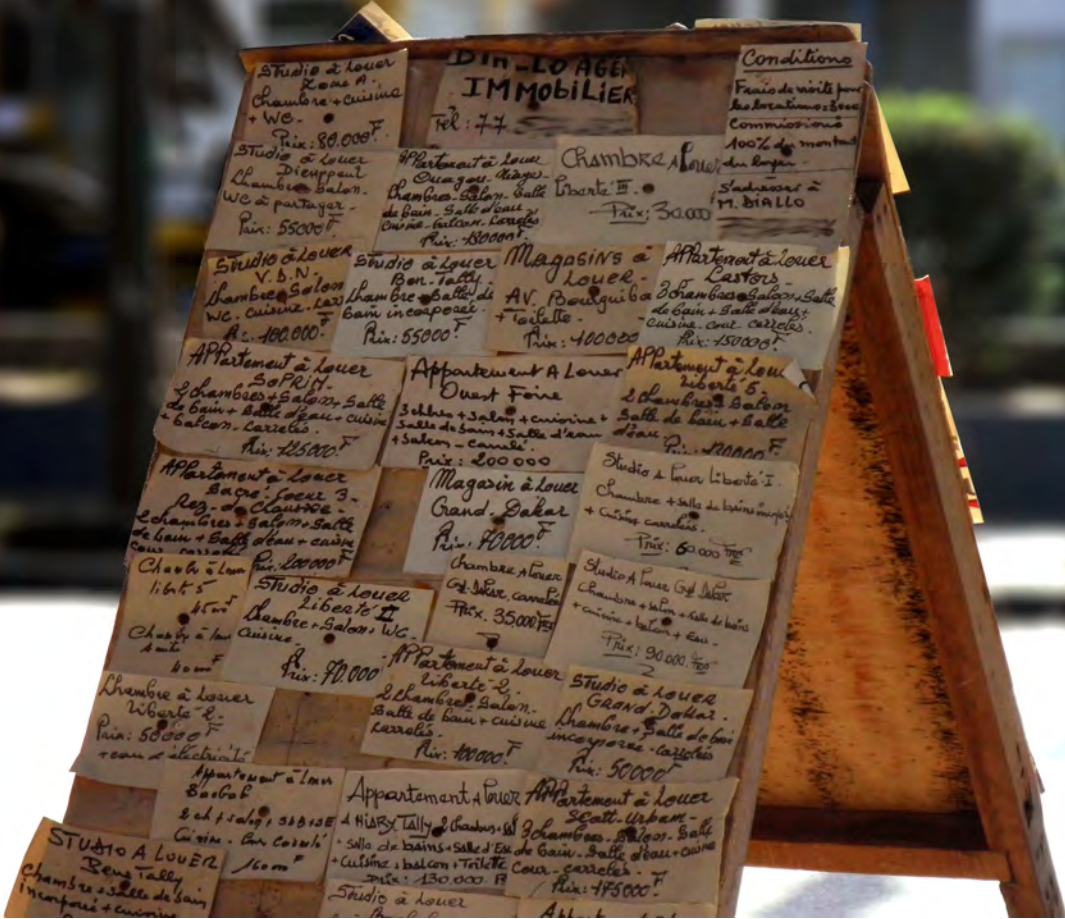 Studio à Louer
Zone A.
Chambre + cuisine
+ WC.
Prix: 80.000 F
IMMOBILIER
Tél: 77
Conditions
Frais de visite pour
les locations:
Commissions
100% du montant
du loyer.
S'adresser à
M. DIALLO
Studio à Louer
Dieuppeul
Chambre. Salon.
WC à partager.
Prix: 55000 F
Appartement à Louer
Ouagou. Niaye
Chambres. Salon. Salle
de bain. Salle d'eau.
cuisine. balcon. carrelés
Prix: 180000 F.
Chambre A Louer
Liberté III.
Prix: 30.000
Studio à Louer
V.D.N.
Chambre. Salon
WC. cuisine.
P.: 100.000 F
Studio à Louer
Ben. Tally
Chambre. Salle de
bain incorporée.
Prix: 55000 F
Magasins à
Louer.
AV. Bourguiba
+ Toilette.
Prix: 100000
Appartement à Louer
Castors.
3 chambres. Salon. Salle
de bain + Salle d'eau +
cuisine. cour. carrelés.
Prix: 150000 F
Appartement à Louer
SOPRIM.
2 chambres + Salon + Salle
de bain + Salle d'eau + cuisine
+ balcon. carrelés.
Prix: 125000 F
Appartement A Louer
Ouest Foire
3 chbres + Salon + cuisine +
Salle de bain + Salle d'eau
+ Salon - carrelé.
Prix: 200 000
Appartement à Lou
Liberté 5.
2 chambres. Salon
Salle de bain + Salle
d'eau.
Appartement à Louer
Sacré. Coeur 3.
Rez. de Chaussée.
2 chambres + Salon + Salle
de bain + Salle d'eau + cuisine
cour. carrelés
Prix: 200000 F
Magasin à Louer
Grand. Dakar
Prix. 70000 F
Studio à louer Liberté I.
Chambre + salle de bains
+ Cuisine carrelés.
Prix: 60.000
à Louer
liberté 5
45 m F
40 m F
Studio à Louer
Liberté II
Chambre + Salon + WC.
Cuisine.
Prix: 70.000 F
Chambre A Louer
Gd. Dakar, carrelée
Prix. 35.000 F
Studio A louer Gd Dakar
Chambre + salon + salle de bains
+ cuisine + balcon + Eau.
Prix: 90.000.
Chambre à Louer
Liberté 2.
Prix: 50000 F
+ eau + électricité
Appartement à Louer
Liberté 2.
2 chambres. Salon.
Salle de bain + cuisine
carrelés.
Prix: 100000 F
Studio à Louer
Grand. Dakar.
Chambre + Salle de bain
incorporée. carrelés
Prix: 50000 F
Appartement à Louer
Baobab
2 ch + salon + SDB + SE
Cuisine. Cour Carrelé
160 m
Appartement A louer
A HIARY TALLY 2 Chambres +
+ salle de bains + salle d'Eau
+ Cuisine + balcon + Toilette
Prix: 130.000. F
Appartement à Louer
Scatt. Urbam.
3 chambres. Salon. Salle
de bain. Salle d'eau + cuisine
Cour. carrelés.
Prix: 175000 F.
STUDIO A LOUER
Bene Tally
Chambre + Salle de bain
incorporée + cuisine
Studio à Louer